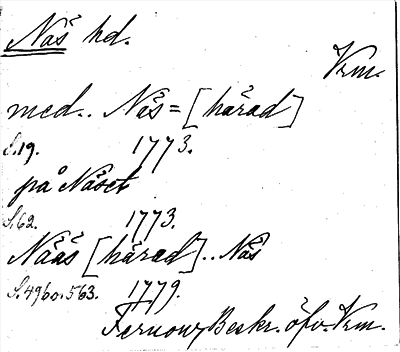 Näs hd.
Vrm.
med.. Näs= [härad]
S.19. 1773.
på Näset
S.62. 1773.
Nääs [härad].. Näs
S.496 o. 563. 1779.
Fernow, Beskr. öfv. Vrm.